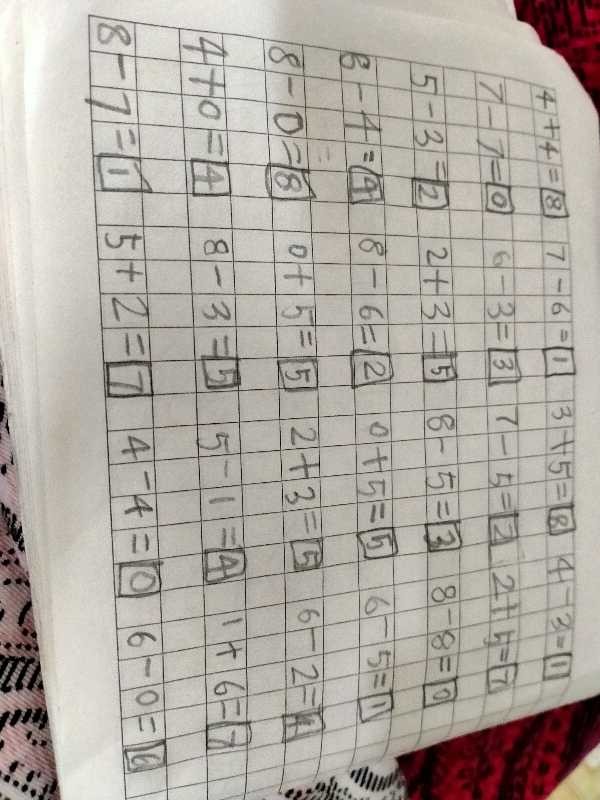 4+4=8 7-6=1 3+5=8 4-3=1
7-7=0 6-3=3 7-5=2 2+5=7
5-3=2 2+3=5 8-5=3 8-8=0
8-4=4 8-6=2 0+5=5 6-5=1
8-0=8 0+5=5 2+3=5 6-2=4
4+0=4 8-3=5 5-1=4 1+6=7
8-7=1 5+2=7 4-4=0 6-0=6